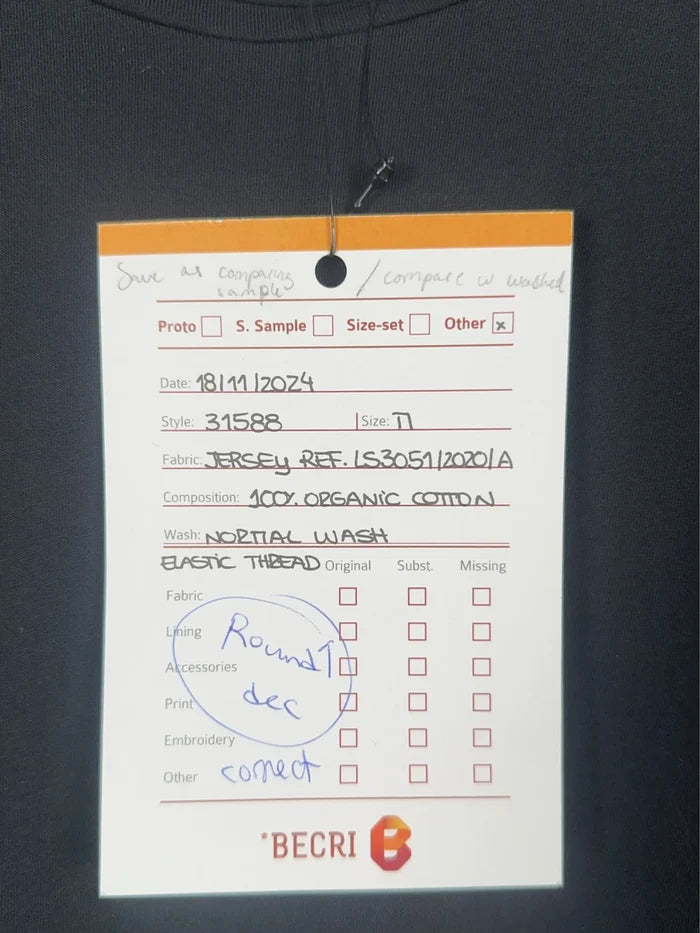 Save as comparing / compare w washed
sample
Proto S. Sample Size-set Other x
Date: 18/11/2024
Style: 31588 Size: M
Fabric: JERSEY REF. LS3051/2020/A
Composition: 100% ORGANIC COTTON
Wash: NORMAL WASH
ELASTIC THREAD Original Subst. Missing
Fabric
Lining Round
Accessories
Print dec
Embroidery
Other correct
BECRI